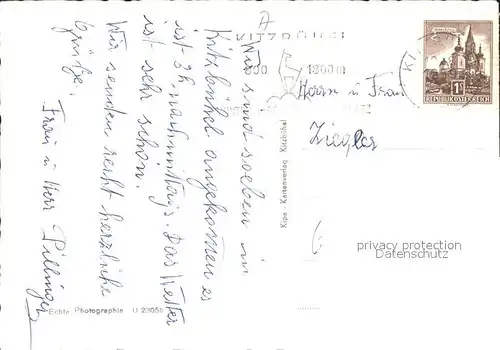 Wir sind soeben in
Kitzbühel angekommen es
ist 3h nachmittags. Das Wetter
ist sehr schön.
Wir senden recht herzliche
Grüße.
Frau u Herr Pillinger
Echte Photographie U 23058
Kipa - Kartenverlag Kitzbühel
KITZBÜHEL
800 1800m
KI
REPUBLIK ÖSTERREICH
Herrn u Frau
Ziegler
privacy protection
Datenschutz